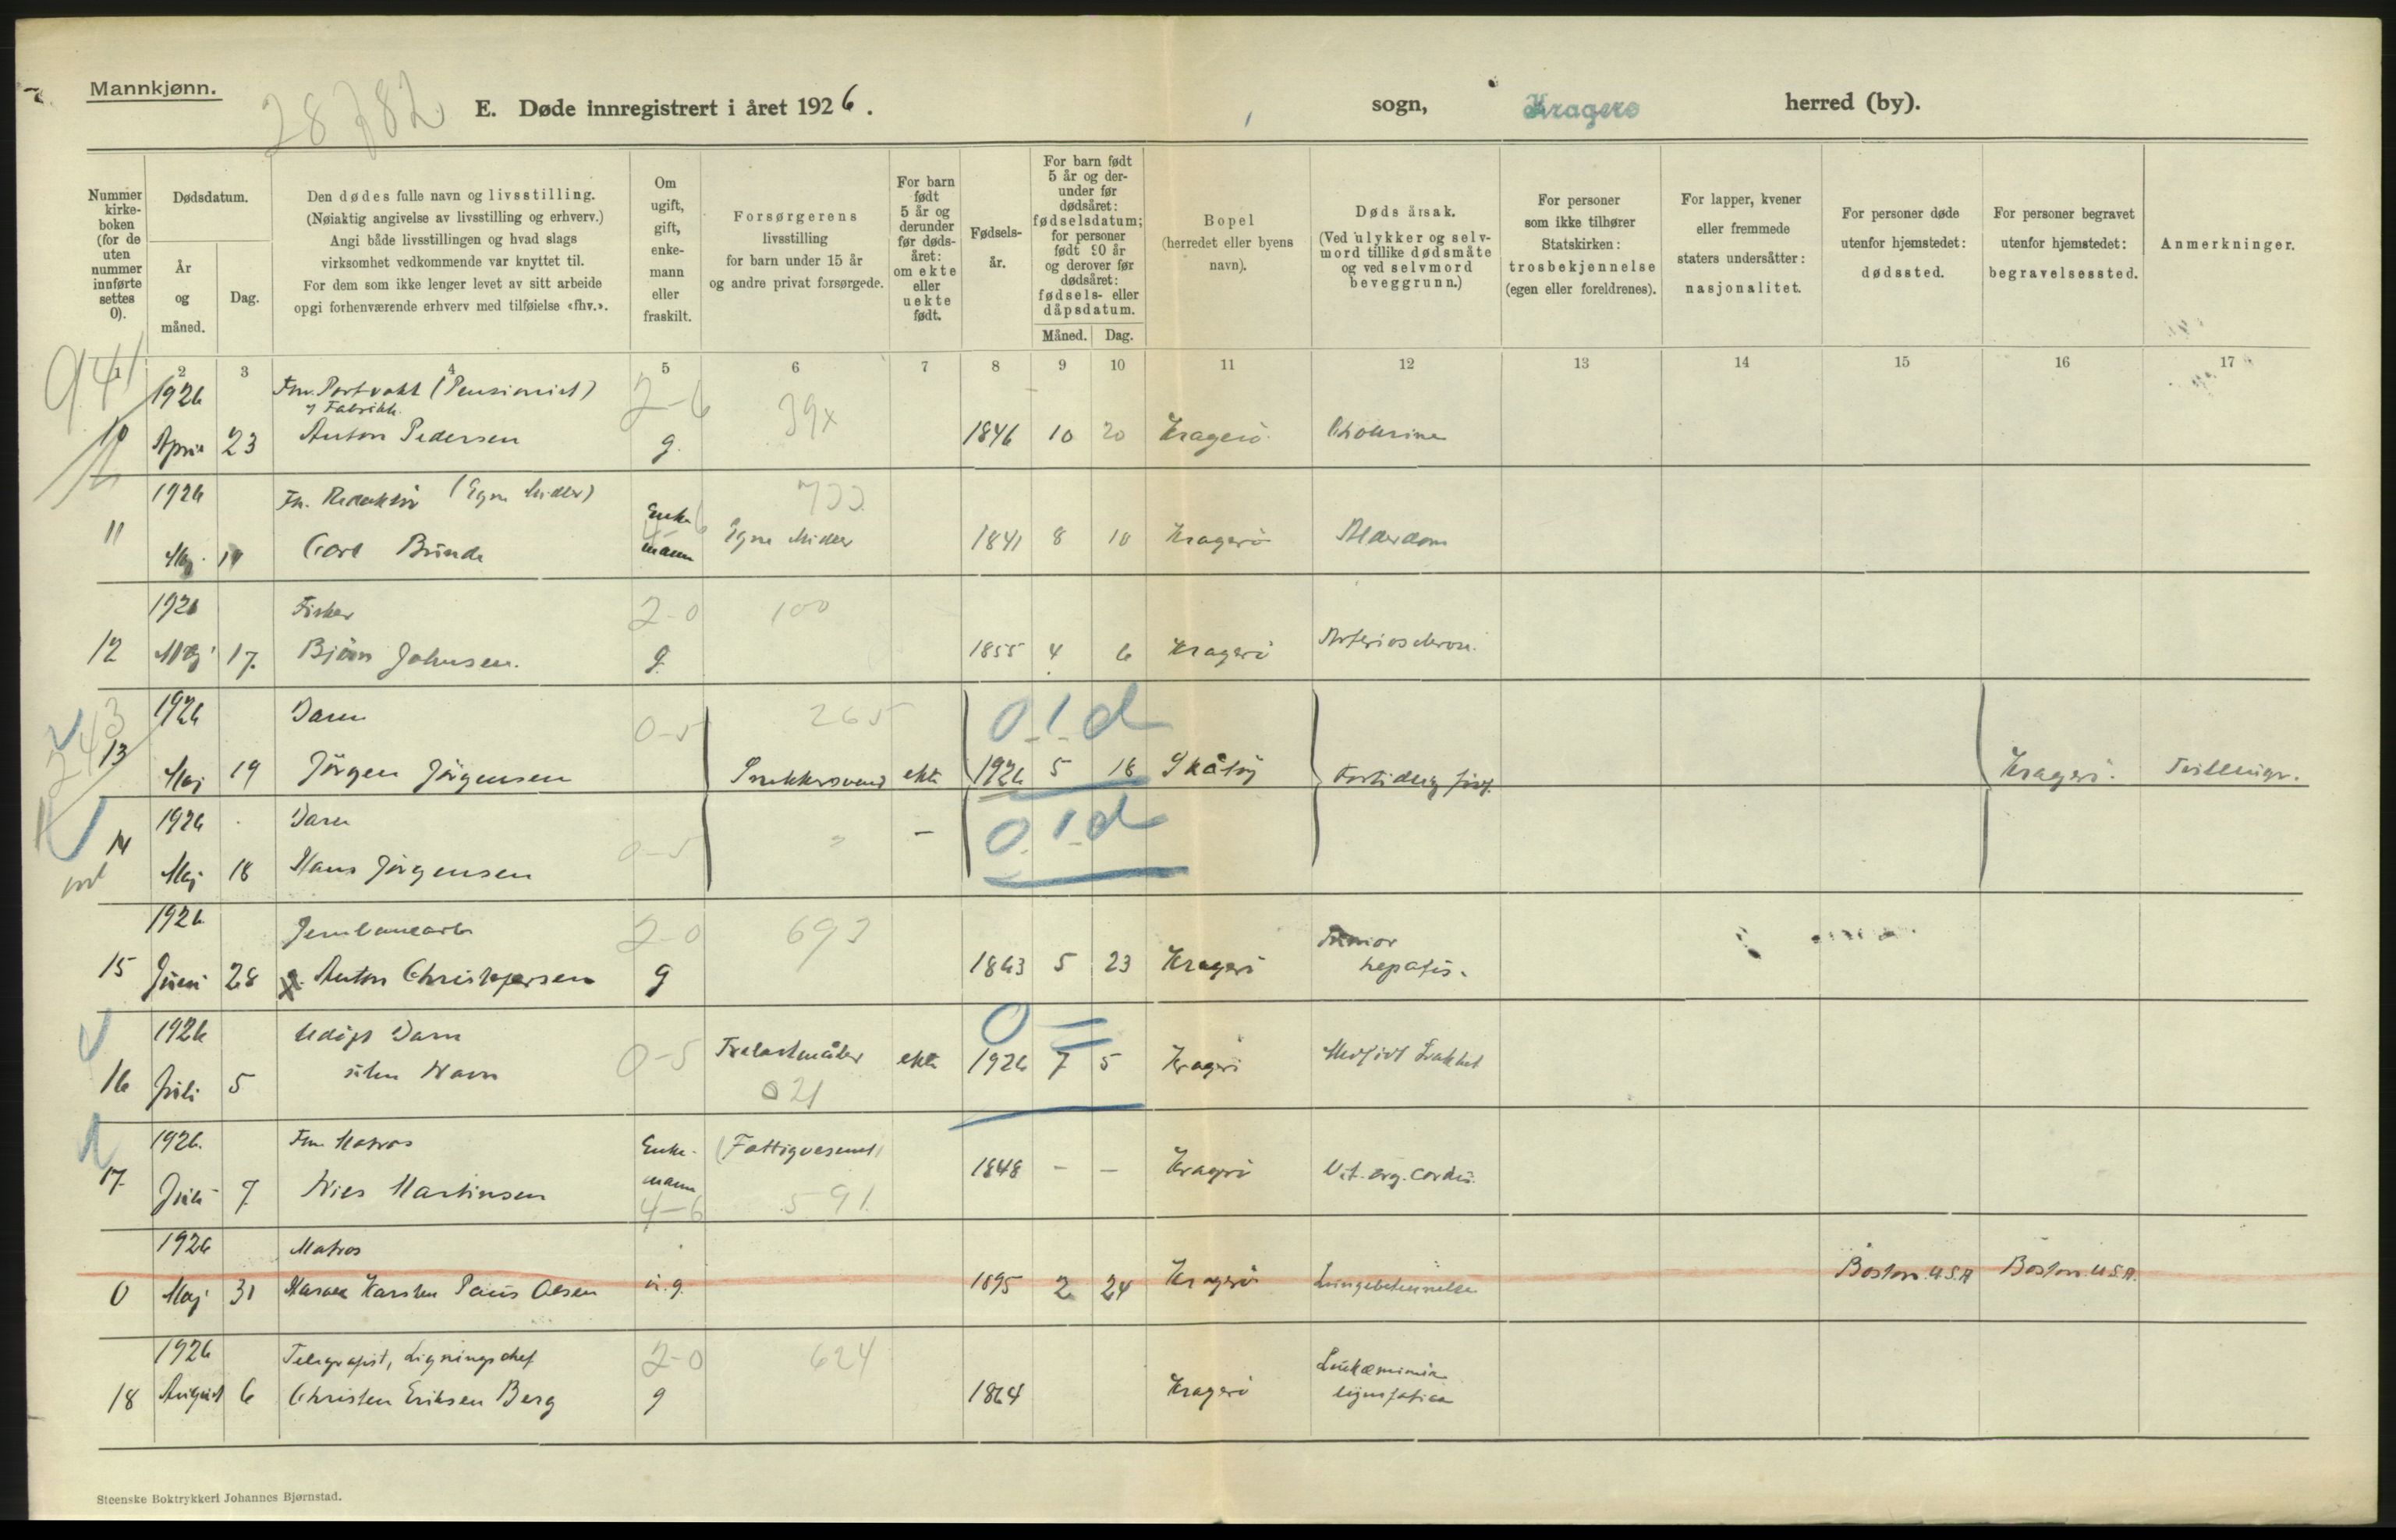 Mannkjønn.
28782
E. Døde innregistrert i året 1926.
sogn,
Kragerø
herred (by).
Nummer
kirke-
boken
(for de
uten
nummer
innførte
settes
0).
Dødsdatum.
År
og
måned.
Dag.
Den dødes fulle navn og livsstilling.
(Nøiaktig angivelse av livsstilling og erhverv.)
Angi både livsstillingen og hvad slags
virksomhet vedkommende var knyttet til.
For dem som ikke lenger levet av sitt arbeide
opgi forhenværende erhverv med tilføielse «fhv.».
Om
ugift,
gift,
enke-
mann
eller
fraskilt.
Forsørgerens
livsstilling
for barn under 15 år
og andre privat forsørgede.
For barn
født
5 år og
derunder
før døds-
året:
om ekte
eller
uekte
født.
Fødsels-
år.
For barn født
5 år og der-
under før
dødsåret:
fødselsdatum;
for personer
født 90 år
og derover før
dødsåret:
fødsels- eller
dåpsdatum.
Måned.
Dag.
Bopel
(herredet eller byens
navn).
Døds årsak.
(Ved ulykker og selv-
mord tillike dødsmåte
og ved selvmord
beveggrunn.)
For personer
som ikke tilhører
Statskirken:
trosbekjennelse
(egen eller foreldrenes).
For lapper, kvener
eller fremmede
staters undersåtter:
nasjonalitet.
For personer døde
utenfor hjemstedet:
dødssted.
For personer begravet
utenfor hjemstedet:
begravelsessted.
Anmerkninger.
1 2 3 4 5 6 7 8 9 10 11 12 13 14 15 16 17
941
1926 Fhv. Portvakt (Pensionist) 2-6 39x
v/ Fabrikk
10 April 23 Anton Pedersen g. 1846 10 20 Kragerö
1926 Fh. Redaktör (Egne Midler) Enke 6 722
11 Maj Carl Bunde mann Egne Midler 1841 8 10 Kragerö Alderdom
1926 Fisker 2-0 100
12 Maj 17. Björn Johnsen. g. 1855 4 6 Kragerö Arteriosclerose.
243
1926 Barn 0-5 265 0.1.d
13 Maj 19 Jörgen Jörgensen Snekkersvend ekte 1926 5 18 Skåtöy Fortidlig föd. Kragerö. Tvillinger.
1926 Barn 0-5 " - 0.1d
14 Maj 18 Hans Jörgensen
1926 Jernbanearb 2-0 693
15 Juni 28 Anton Christophersen g 1863 5 23 Kragerö Tumor
hepatis.
1926 Udöpt Barn 0-5 Trelastmåler ekte 0
16 Juli 5 uten Navn 021 1926 7 5 Kragerö Medfödt Svakhet
1926. Fhv. Matros Enke- (Fattigvesenet)
17. Juli 7 Nils Martinsen mann 4-6 591 1848 - - Kragerö Vit. org. cordis.
1926 Matros
0 Maj 31 Karsten Paus Olsen u.g. 1895 2 24 Kragerö Lungebetennelse Boston. U.S.A Boston. U.S.A.
1926 Telegrafist, Ligningschef 2-0 624
18 August 6 Christen Eriksen Berg g 1864 Kragerö
Steenske Boktrykkeri Johannes Bjørnstad.